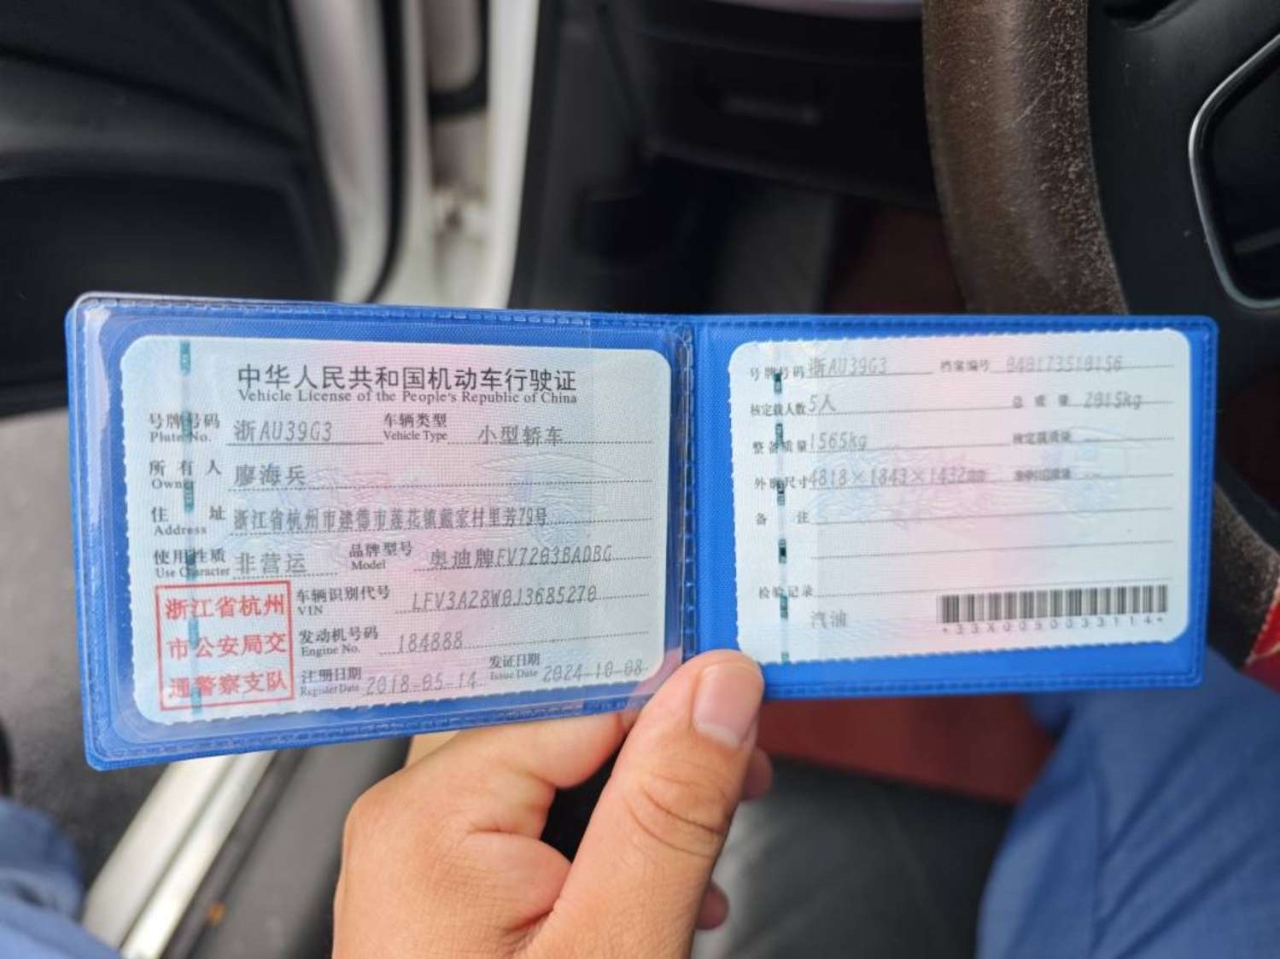 中华人民共和国机动车行驶证
Vehicle License of the People's Republic of China
号牌号码 浙AU39G3 车辆类型 小型轿车
Plate No. Vehicle Type
所有人 廖海兵
Owner
住址 浙江省杭州市建德市莲花镇戴家村里芳79号
Address
使用性质 非营运 品牌型号 奥迪牌FV7203BADBG
Use Character Model
浙江省杭州
市公安局交
通警察支队
车辆识别代号 LFV3A28W0J3685270
VIN
发动机号码 184888
Engine No.
注册日期 2018-05-14 发证日期 2024-10-08
Register Date Issue Date
号牌号码 浙AU39G3 档案编号
核定载人数 5人 总质量
整备质量 1565kg 核定载质量 --
外廓尺寸 4818×1843×1432mm --
备注
检验记录
汽油